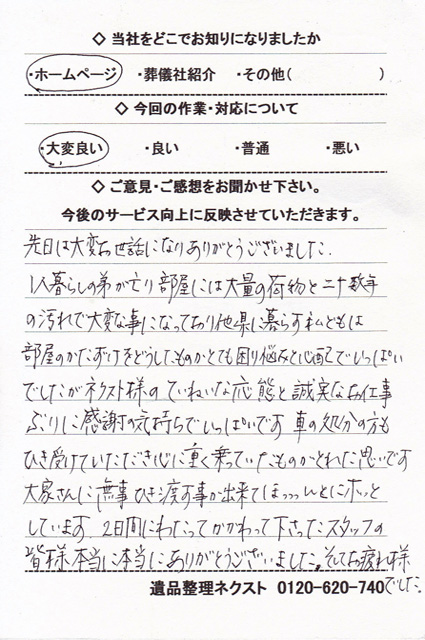 ◇ 当社をどこでお知りになりましたか
・ホームページ ・葬儀社紹介 ・その他( )
◇ 今回の作業・対応について
・大変良い ・良い ・普通 ・悪い
◇ ご意見・ご感想をお聞かせ下さい。
今後のサービス向上に反映させていただきます。
先日は大変お世話になりありがとうございました.
1人暮らしの弟が亡り部屋には大量の荷物と二十数年
の汚れで大変な事になっており他県に暮らす私どもは
部屋のかたずけをどうしたものかとても困り悩みと心配でいっぱい
でしたがネクスト様のていねいな応態と誠実なお仕事
ぶりに感謝の気持ちでいっぱいです 車の処分の方も
ひき受けていただき心に重く乗っていたものがとれた思いです
大家さんに無事ひき渡す事が出来てほっっっんとにホッと
しています. 2日間にわたってかかわって下さったスタッフの
皆様本当に本当にありがとうございました。そしてお疲れ様
でした.
遺品整理ネクスト 0120-620-740